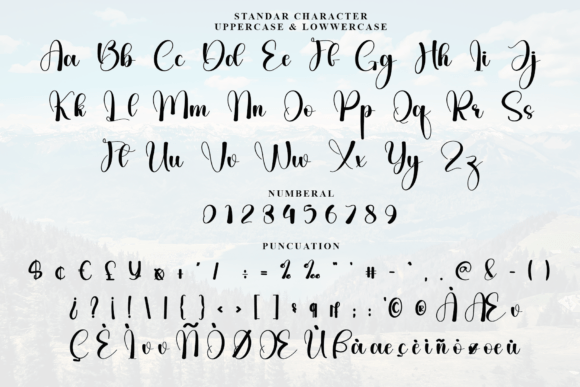 STANDAR CHARACTER
UPPERCASE & LOWWERCASE
Aa Bb Cc Dd Ee Ff Gg Hh Ii Jj
Kk Ll Mm Nn Oo Pp Qq Rr Ss
Tt Uu Vv Ww Xx Yy Zz
NUMBERAL
0 1 2 3 4 5 6 7 8 9
PUNCUATION
$ ¢ € £ ¥ ¤ + ' / ÷ = % ‰ " ' # - ` , . @ & - ( )
¿ ? ¡ ! \ | { } < > [ ] ; : © À Æ
Ç È Ì Ñ Ò Ø Œ Ù ß à æ ç è ì ñ ò ø œ ù